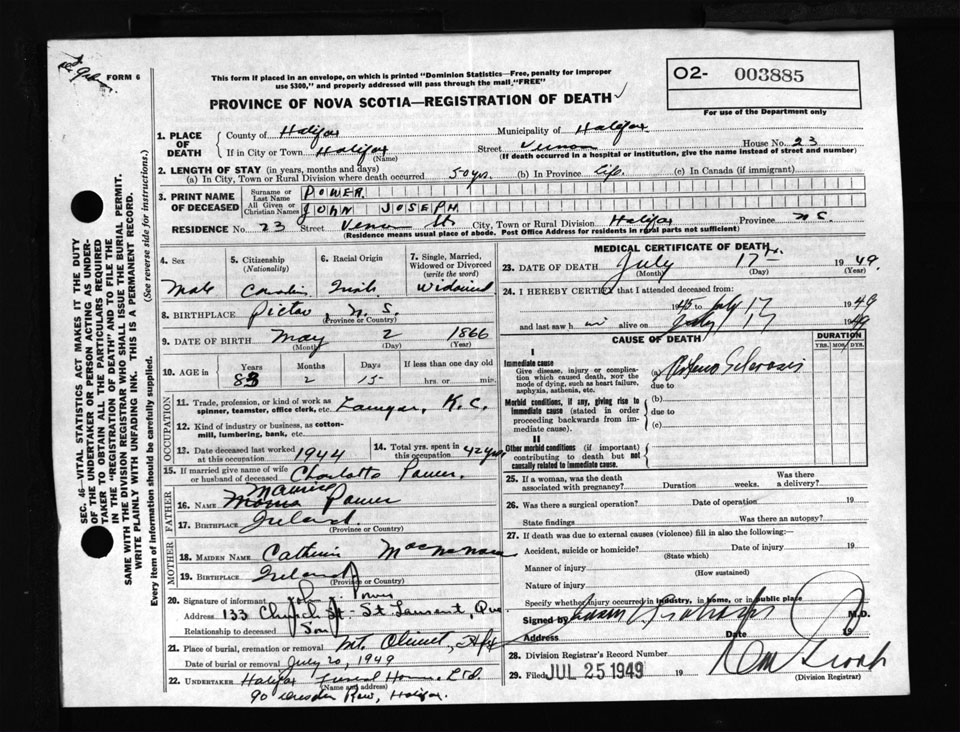 FORM 6
This form if placed in an envelope, on which is printed "Dominion Statistics—Free, penalty for improper
use $300," and properly addressed will pass through the mail "FREE"
O2- 003885
For use of the Department only
PROVINCE OF NOVA SCOTIA—REGISTRATION OF DEATH
1. PLACE OF DEATH
County of Halifax Municipality of Halifax
If in City or Town Halifax (Name) Street Vernon House No. 23
(If death occurred in a hospital or institution, give the name instead of street and number)
2. LENGTH OF STAY (in years, months and days)
(a) In City, Town or Rural Division where death occurred 50 yrs. (b) In Province life. (c) In Canada (if immigrant)
3. PRINT NAME OF DECEASED
Surname or Last Name POWER
All Given or Christian Names JOHN JOSEPH
RESIDENCE No. 23 Street Vernon St. City, Town or Rural Division Halifax Province N.S.
(Residence means usual place of abode. Post Office Address for residents in rural parts not sufficient)
4. Sex Male
5. Citizenship (Nationality)
6. Racial Origin Irish
7. Single, Married, Widowed or Divorced (write the word) Widowed
8. BIRTHPLACE Pictou, N.S. (Province or Country)
9. DATE OF BIRTH May (Month) 2 (Day) 1866 (Year)
10. AGE in Years 83 Months 2 Days 15 If less than one day old hrs. or min.
OCCUPATION
11. Trade, profession or kind of work as spinner, teamster, office clerk, etc. Lawyer, K.C.
12. Kind of industry or business, as cotton-mill, lumbering, bank, etc.
13. Date deceased last worked at this occupation 1944
14. Total yrs. spent in this occupation 42 yrs
15. If married give name of wife or husband of deceased Charlotte Power.
FATHER
16. Name Maurice Power
17. Birthplace Ireland. (Province or Country)
MOTHER
18. MAIDEN NAME Catherine
19. BIRTHPLACE Ireland (Province or Country)
20. Signature of informant John J. Power
Address 133 Church St - St. Laurent, Que
Relationship to deceased Son
21. Place of burial, cremation or removal Mt. Olivet, Hfx
Date of burial or removal July 20, 1949
22. UNDERTAKER Halifax Funeral Home Ltd.
(Name and address)
90 Dresden Row, Halifax.
MEDICAL CERTIFICATE OF DEATH
23. DATE OF DEATH July (Month) 17th. (Day) 1949. (Year)
24. I HEREBY CERTIFY that I attended deceased from:
1945 to July 17 1949
and last saw h im alive on July 17 1949
CAUSE OF DEATH
DURATION
YRS. MOS. DYS.
I
Immediate cause
Give disease, injury or complication which caused death, NOT the mode of dying, such as heart failure, asphyxia, asthenia, etc.
(a) Arterio Sclerosis
due to
Morbid conditions, if any, giving rise to immediate cause (stated in order proceeding backwards from immediate cause).
(b)
due to
(c)
II
Other morbid conditions (if important) contributing to death but not causally related to immediate cause.
25. If a woman, was the death associated with pregnancy? Duration weeks. Was there a delivery?
26. Was there a surgical operation? Date of operation 19
State findings Was there an autopsy?
27. If death was due to external causes (violence) fill in also the following:
Accident, suicide or homicide? (State which) Date of injury 19
Manner of injury (How sustained)
Nature of injury
Specify whether injury occurred in industry, in home, or in public place
Signed by M.D.
Address Date 19
28. Division Registrar's Record Number
29. Filed JUL 25 1949 19
(Division Registrar)
SEC. 46—VITAL STATISTICS ACT MAKES IT THE DUTY
OF THE UNDERTAKER OR PERSON ACTING AS UNDER-
TAKER TO OBTAIN ALL THE PARTICULARS REQUIRED
IN THE "REGISTRATION OF DEATH" AND TO FILE THE
SAME WITH THE DIVISION REGISTRAR WHO SHALL ISSUE THE BURIAL PERMIT.
WRITE PLAINLY WITH UNFADING INK. THIS IS A PERMANENT RECORD.
Every item of information should be carefully supplied. (See reverse side for instructions.)